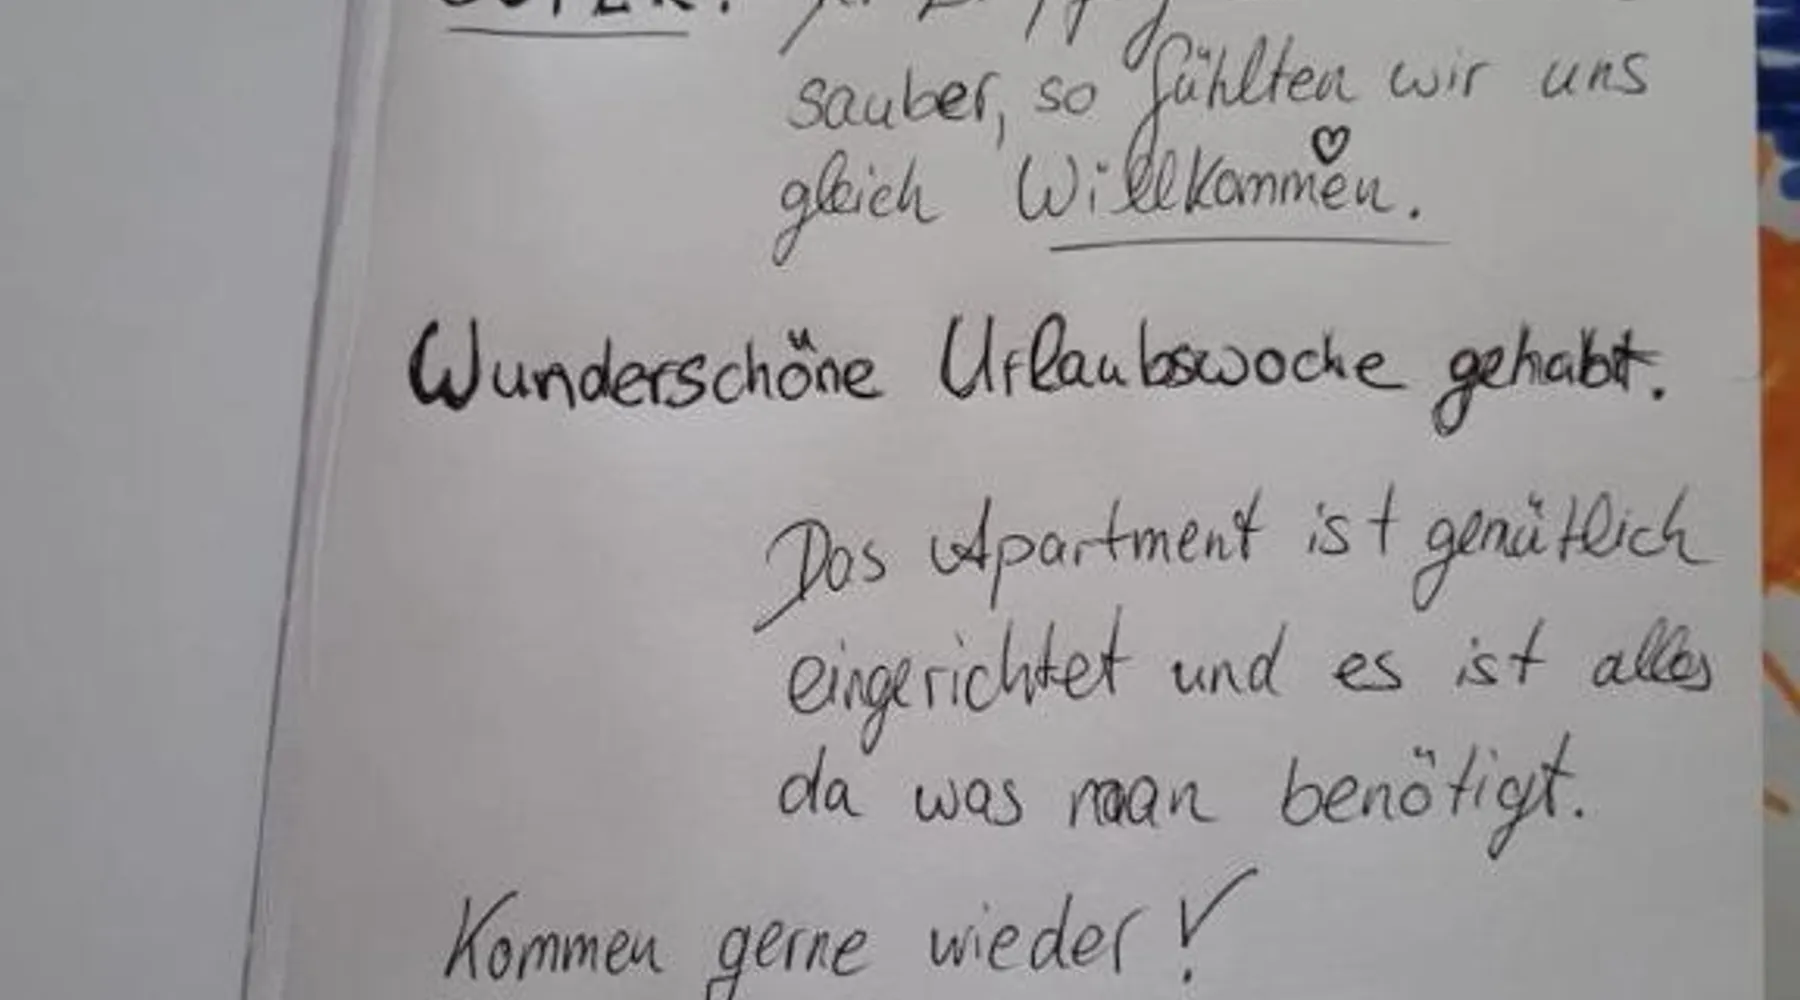 sauber, so fühlten wir uns
gleich Willkommen.
Wunderschöne Urlaubswoche gehabt.
Das Apartment ist gemütlich
eingerichtet und es ist alles
da was man benötigt.
Kommen gerne wieder!